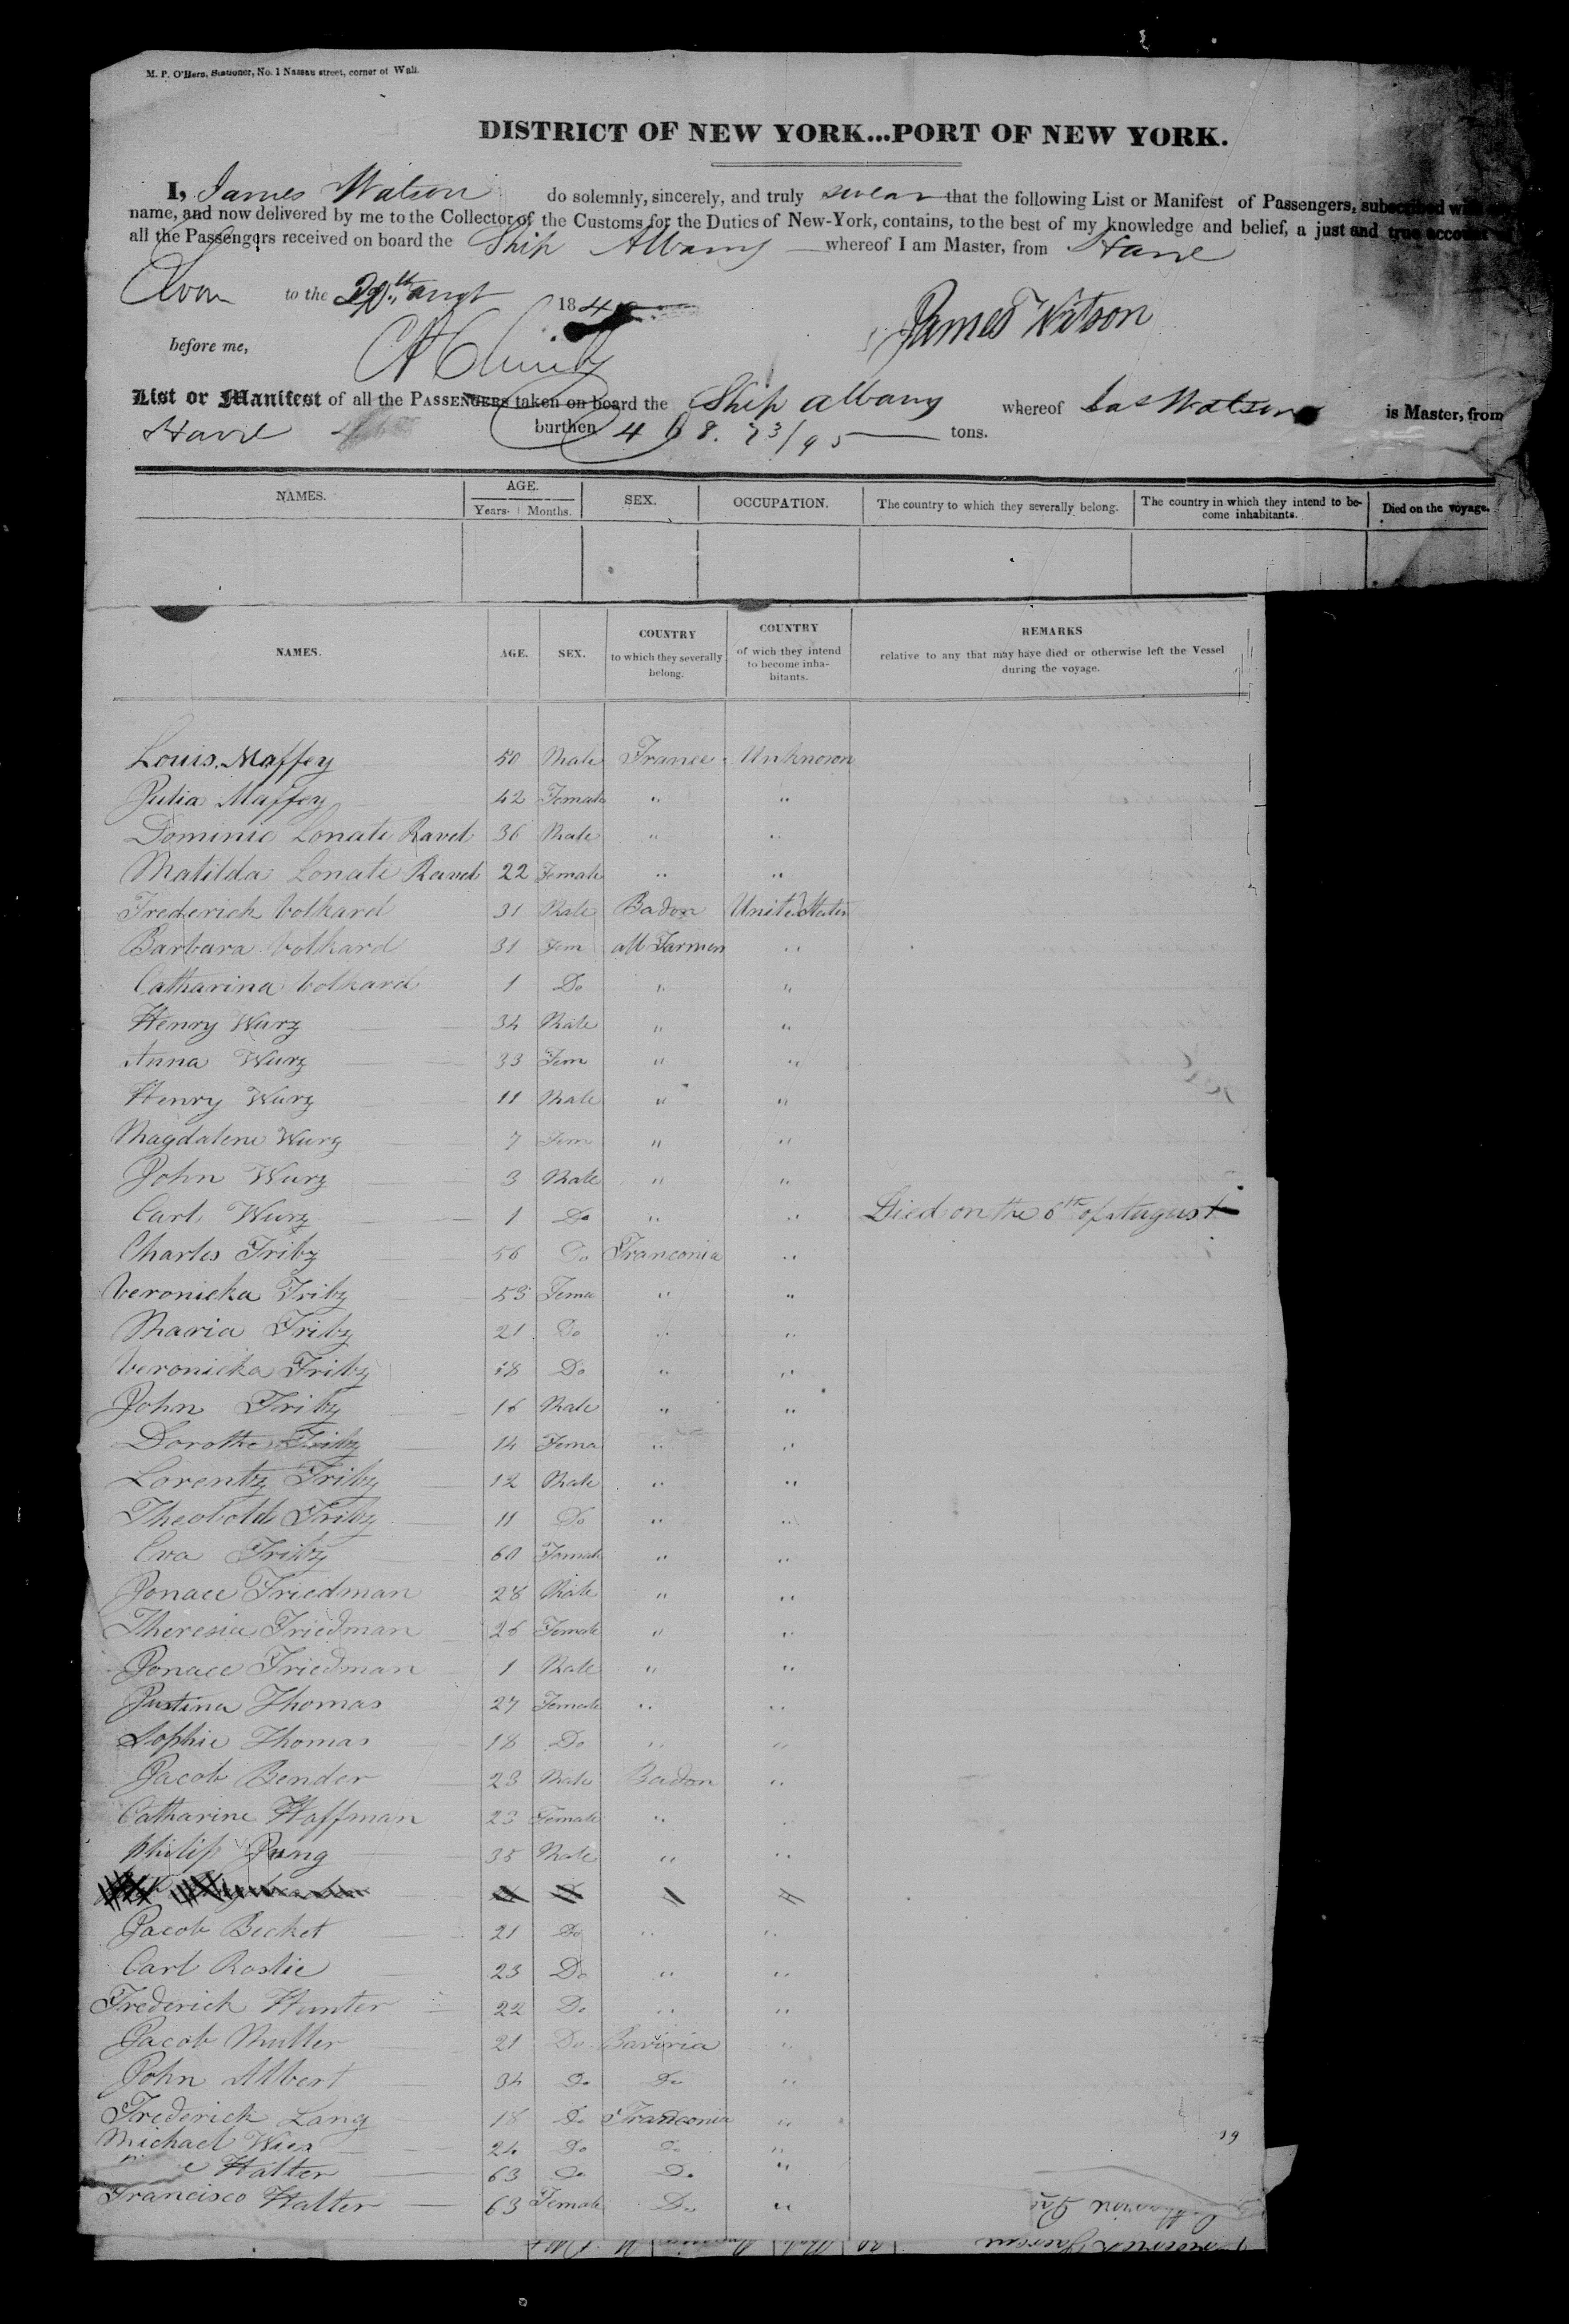 M. P. O'Hern, Stationer, No. 1 Nassau street, corner of Wall.
DISTRICT OF NEW YORK...PORT OF NEW YORK.
I, James Watson do solemnly, sincerely, and truly swear that the following List or Manifest of Passengers, subscribed with
name, and now delivered by me to the Collector of the Customs for the Duties of New-York, contains, to the best of my knowledge and belief, a just and true account
all the Passengers received on board the Ship Albany whereof I am Master, from Havre
to the 20th augt 184
James Watson
before me,
List or Manifest of all the PASSENGERS taken on board the Ship Albany whereof Jas Watson is Master, from
Havre burthen 468. 73/95 tons.
NAMES. AGE. SEX. OCCUPATION. The country to which they severally belong. The country in which they intend to become inhabitants. Died on the voyage.
Years. Months.
NAMES. AGE. SEX. COUNTRY to which they severally belong. COUNTRY of wich they intend to become inhabitants. REMARKS relative to any that may have died or otherwise left the Vessel during the voyage.
Louis Maffey 50 Male France Unknown
Julia Maffey 42 Female " "
Dominic Lonati Ravel 36 Male " "
Matilda Lonati Ravel 22 Female " "
Frederick Volkard 31 Male Baden United States
Barbara Volkard 31 Fem all Farmers "
Catharina Volkard 1 Do " "
Henry Wurz 34 Male " "
Anna Wurz 33 Fem " "
Henry Wurz 11 Male " "
Magdalene Wurz 7 Fem " "
John Wurz 3 Male " "
Carl Wurz 1 Do " " Died on the 6th of August
Charles Fribz 56 Do Franconia "
Veronicka Fribz 53 Fema " "
Maria Fribz 21 Do " "
Veronicka Fribz 18 Do " "
John Fribz 16 Male " "
Dorothe Fribz 14 Fema " "
Lorentz Fribz 12 Male " "
Theobold Fribz 11 Do " "
Eva Fribz 60 Female " "
Jonace Friedman 28 Male " "
Theresia Friedman 26 Female " "
Jonace Friedman 1 Male " "
Justina Thomas 27 Female " "
Sophie Thomas 18 Do " "
Jacob Bender 23 Male Baden "
Catharine Hoffman 23 Female "
Philip Jung 35 Male " "
Jacob Becket 21 Do " "
Carl Roslie 23 Do " "
Frederick Hunter 22 Do " "
Jacob Muller 21 Do Baviria "
John Albert 34 Do Do "
Frederick Lang 18 Do Franconia "
Michael 24 Do Do "
Halter 63 Do Do "
Francisco Halter 63 Female Do "